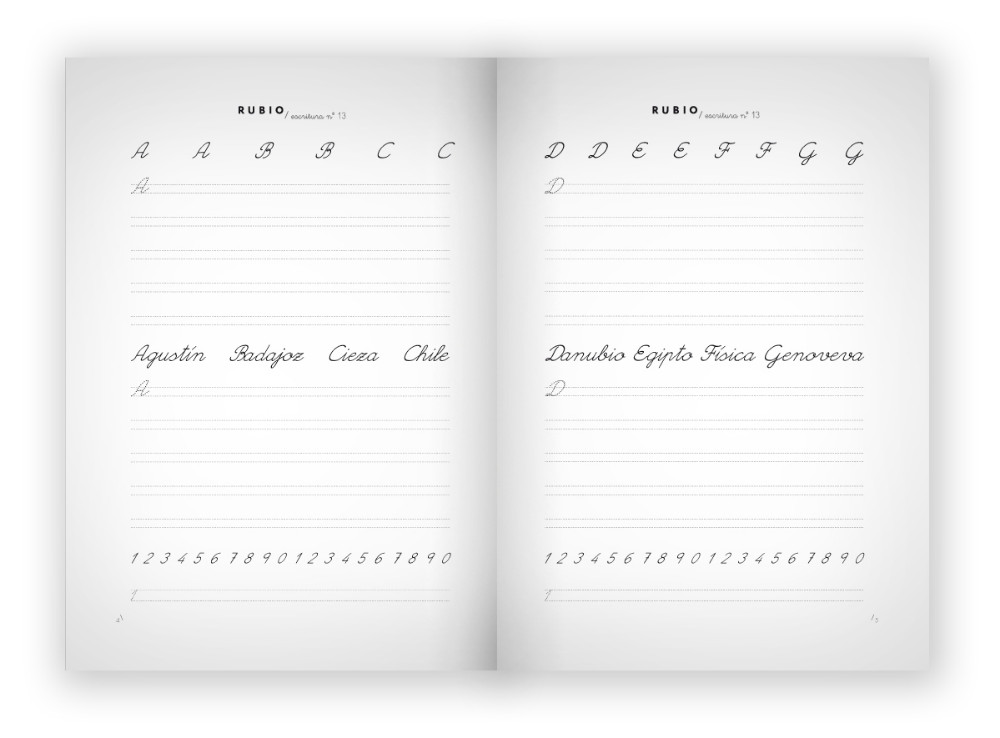 RUBIO/ escritura n° 13
A A B B C C
A
Agustín Badajoz Cieza Chile
A
1 2 3 4 5 6 7 8 9 0 1 2 3 4 5 6 7 8 9 0
1
4/
RUBIO/ escritura n° 13
D D E E F F G G
D
Danubio Egipto Física Genoveva
D
1 2 3 4 5 6 7 8 9 0 1 2 3 4 5 6 7 8 9 0
1
/5